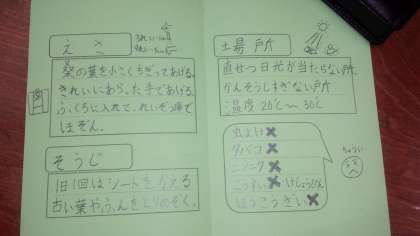 えさ
きれいに
桑の葉を小さくちぎってあげる。
きれいにあらった手であげる。
ふくろに入れて、れいぞう庫で
ほぞん。
そうじ
1日1回はシートをかえる
古い葉や、ふんをとりのぞく。
場所
直せつ日光が当たらない所。
かんそうしすぎない所
温度 20℃〜30℃
虫よけ✖
タバコ✖
ニンニク✖
こうすい✖ けしょうひん
ほうこうざい✖
ちゅうい